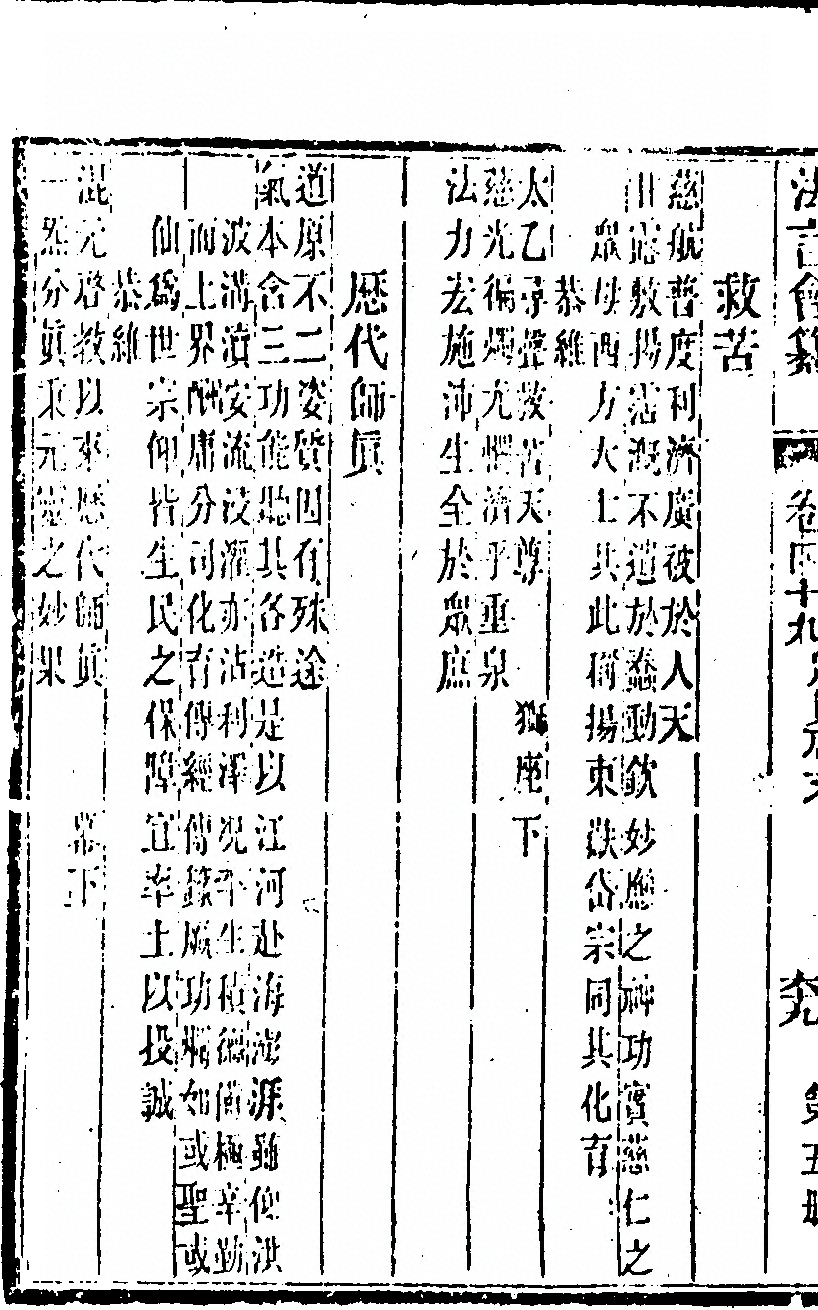 法言會纂 卷四十九 六九 第五册
救苦
慈航普度利濟廣被於人天
甘露敷揚沾溉不遺於蠢動欽妙應之神功實慈仁之
眾母西方大士具此稱揚東嶽岱宗同其化育
恭維
太乙尋聲救苦天尊 獅座下
慈光徧燭尤懷濟乎重泉
法力宏施沛生全於眾庶
歷代師眞
道原不二姿質因有殊途
氣本含三功能聽其各造是以江河赴海澎湃雖仰洪
波溝瀆安流浸灌亦沾利澤況平生積德備極辛勤
而上界酬庸分司化育傳經傳籙厥功 如或聖或
仙爲世宗仰皆生民之保障宜率土以投誠
恭維
混元啓教以來歷代師眞 下
一炁分眞秉元 之妙果